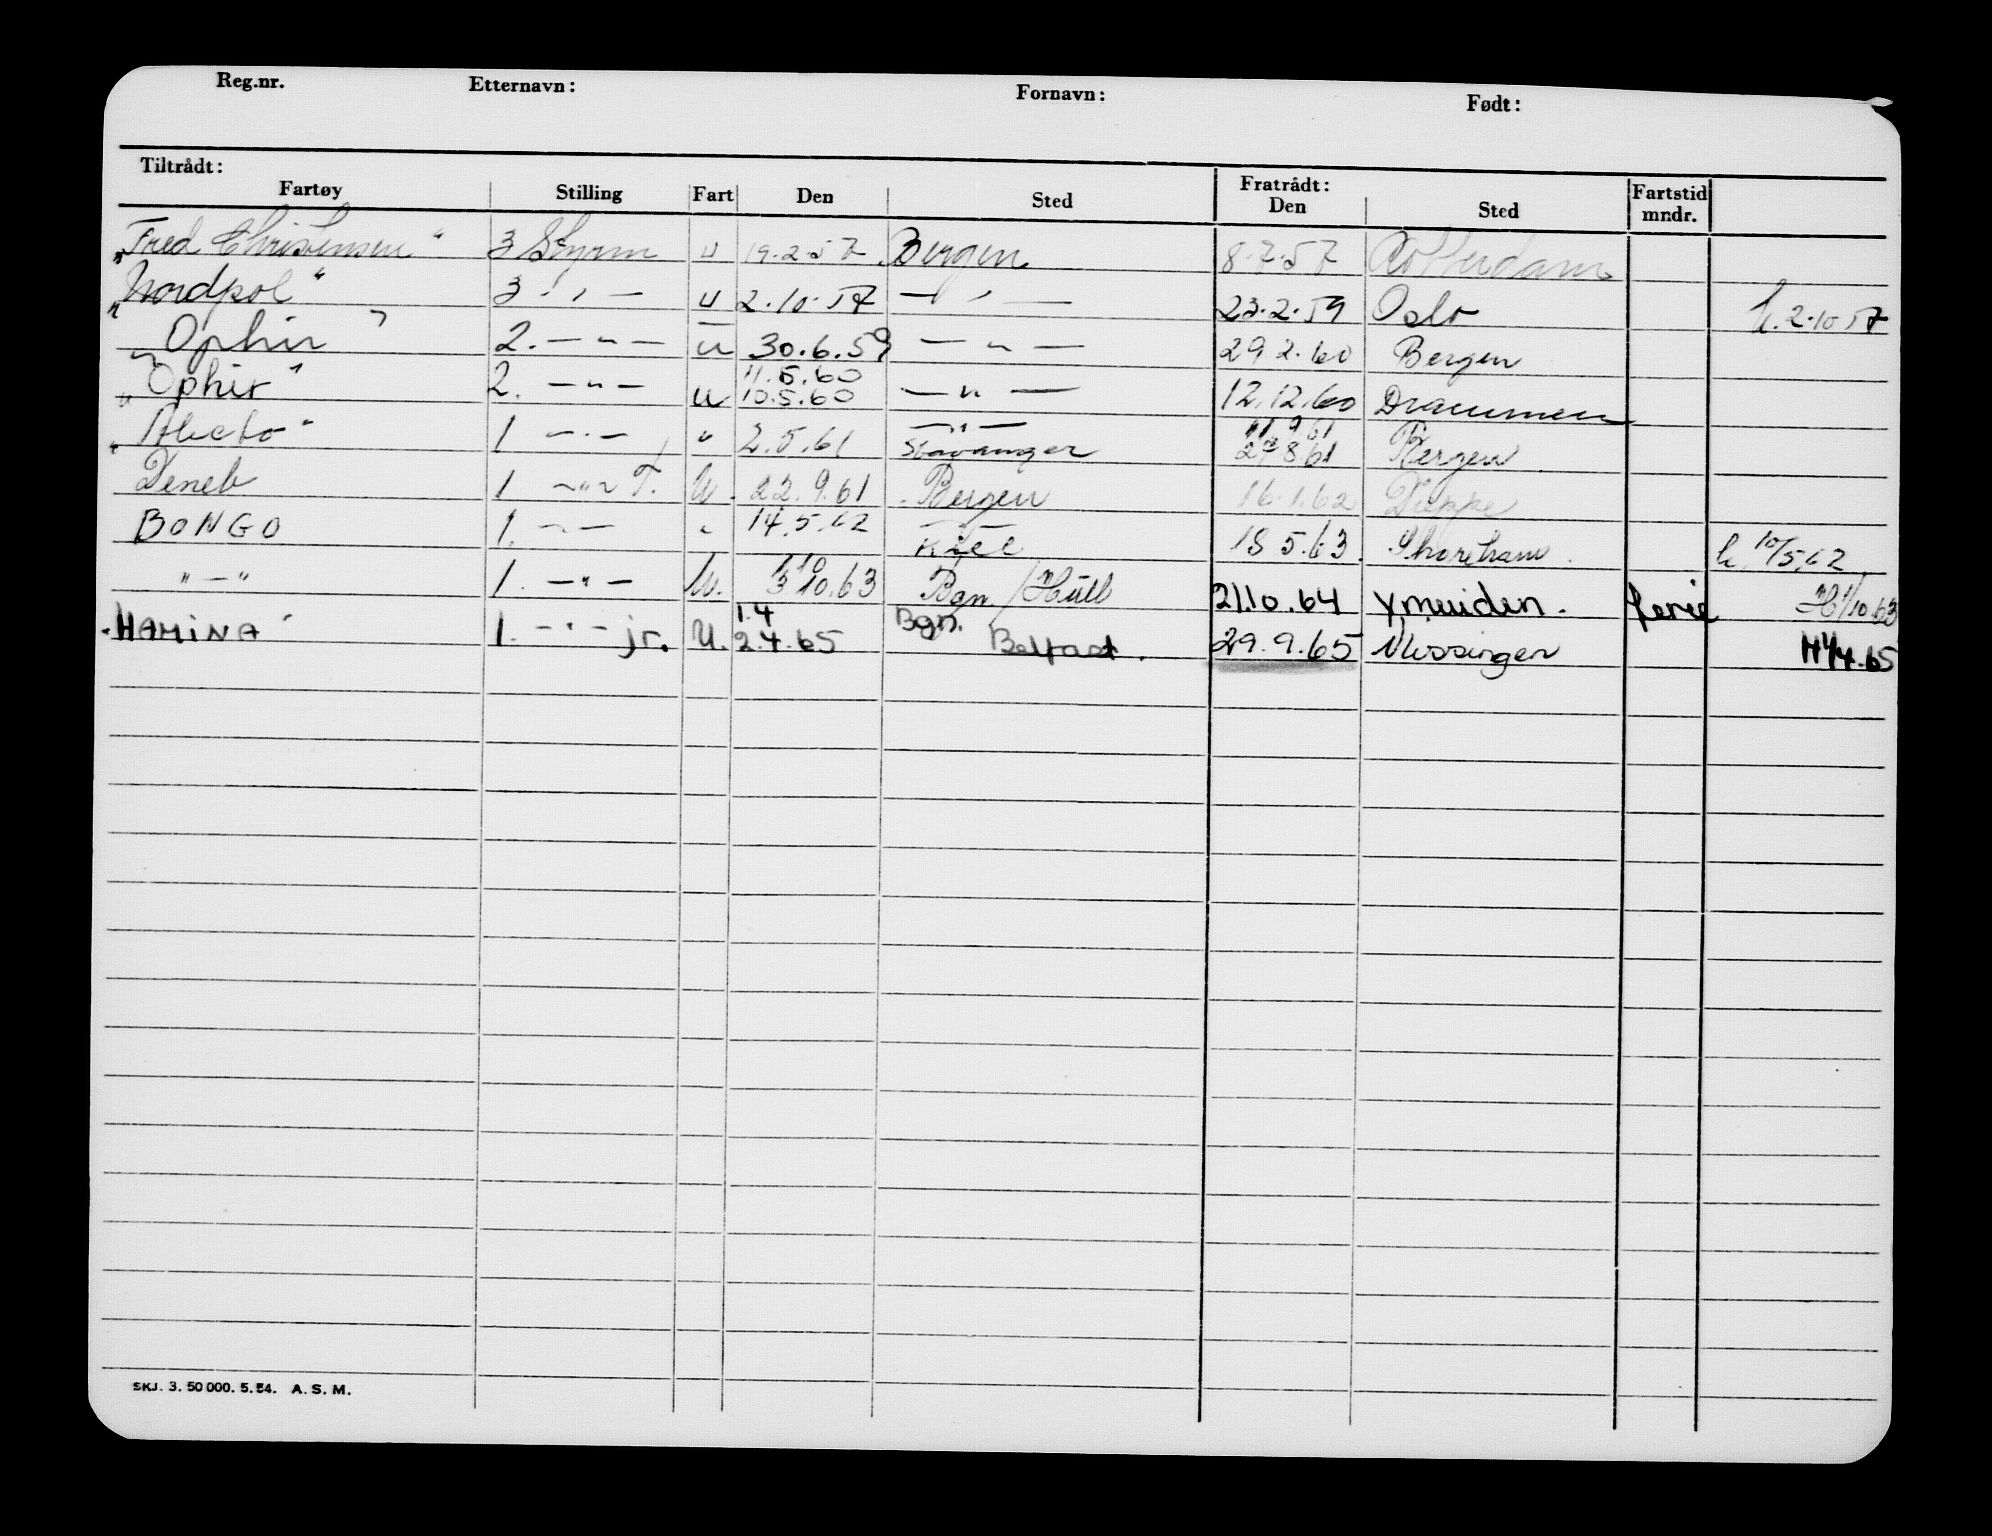 Reg.nr. Etternavn: Fornavn: Født:
Tiltrådt: Fratrådt:
Fartøy Stilling Fart Den Sted Den Sted Fartstid mndr.
„Fred Christensen" 3 Styrm u 19.2.57 Bergen 8.7.57 Rotterdam
„Nordpol" 3 - " - u 2.10.57 - " - 23.2.59 Oslo h. 2.10.57
„Ophir" 2. - " - u 30.6.59 - " - 29 2.60 Bergen
„Ophir" 2. - " - u 11.5.60 10.5.60 - " - 12.12.60 Drammen
„Alecto" 1 - " - " 2.5.61 - " - Stavanger 11 9 61 27 8 61 Bergen
Deneb 1 - " - T. U. 22.9.61 Bergen 16.1.62 Dieppe
BONGO 1. - " - " 14.5.62 Kiel 18 5.63. Shoreham. h. 10/5.62
" - " 1. - " - U. 1.10 3.10.63 Bgn. / Hull 21.10.64 Ymuiden. ferie H 1/10.63
"HAMINA" 1. - " - jr. U. 1.4 2.4.65 Bgn. Belfast. 29.9.65 Vlissingen H 1/4.65
SKJ. 3. 50 000. 5. 54. A. S. M.